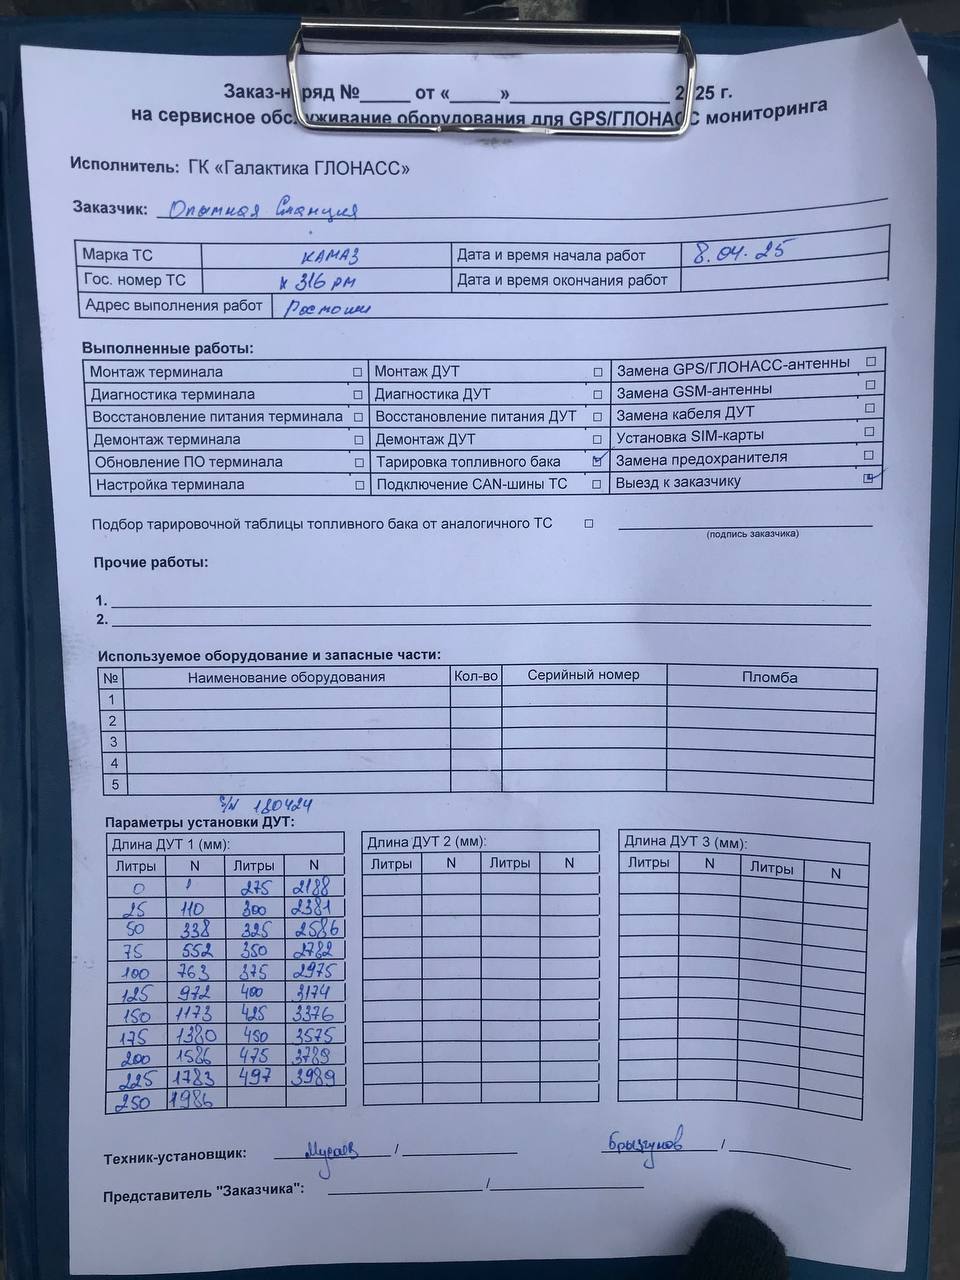 Заказ-наряд №_____ от «_____»________________ 2025 г.
на сервисное обслуживание оборудования для GPS/ГЛОНАСС мониторинга
Исполнитель: ГК «Галактика ГЛОНАСС»
Заказчик: Опытная Станция
Марка ТС КАМАЗ Дата и время начала работ 8.04.25
Гос. номер ТС К 316 РМ Дата и время окончания работ
Адрес выполнения работ Россошь
Выполненные работы:
Монтаж терминала ☐ Монтаж ДУТ ☐ Замена GPS/ГЛОНАСС-антенны ☐
Диагностика терминала ☐ Диагностика ДУТ ☐ Замена GSM-антенны ☐
Восстановление питания терминала ☐ Восстановление питания ДУТ ☐ Замена кабеля ДУТ ☐
Демонтаж терминала ☐ Демонтаж ДУТ ☐ Установка SIM-карты ☐
Обновление ПО терминала ☐ Тарировка топливного бака ☑ Замена предохранителя ☐
Настройка терминала ☐ Подключение CAN-шины ТС ☐ Выезд к заказчику ☑
Подбор тарировочной таблицы топливного бака от аналогичного ТС ☐
(подпись заказчика)
Прочие работы:
1.
2.
Используемое оборудование и запасные части:
№ Наименование оборудования Кол-во Серийный номер Пломба
1
2
3
4
5
S/N 180424
Параметры установки ДУТ:
Длина ДУТ 1 (мм): Длина ДУТ 2 (мм): Длина ДУТ 3 (мм):
Литры N Литры N Литры N Литры N Литры N Литры N
0 1 275 2188
25 110 300 2381
50 338 325 2586
75 552 350 2782
100 763 375 2975
125 972 400 3174
150 1173 425 3376
175 1380 450 3575
200 1586 475 3789
225 1783 497 3989
250 1986
Техник-установщик: Мусаев / Брызгунов /
Представитель "Заказчика": /